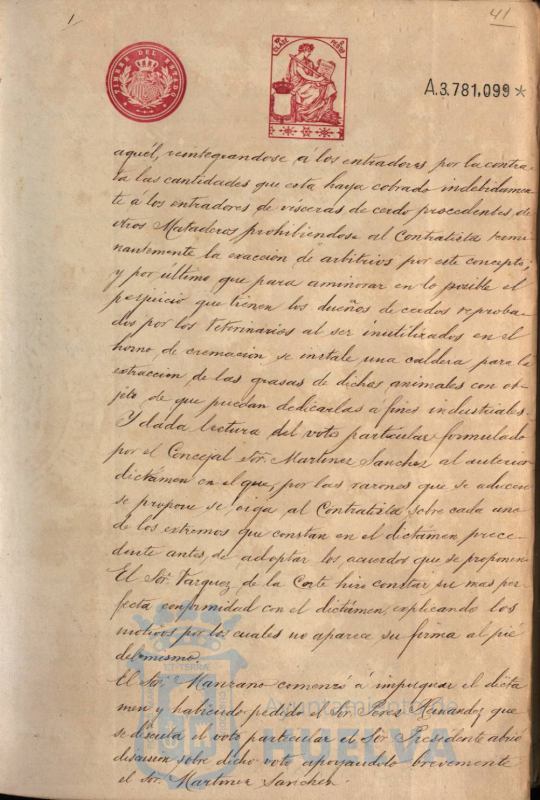 1
41
TIMBRE DEL ESTADO
A.3.781,099 *
aquél, reintegrandose á los entradores por la contra-
ta las cantidades que esta haya cobrado indebidamen
te á los entradores de vísceras de cerdo procedentes de
otros Mataderos prohibiendose al Contratista termi
nantemente la exacción de arbitrios por este concepto;
y por ultimo que para aminorar en lo posible el
perjuicio que tienen los dueños de cerdos reproba-
dos por los Veterinarios al ser inutilizados en el
horno de cremacion se instale una caldera para la
extraccion de las grasas de dichos animales con ob-
jeto de que puedan dedicarlas á fines industriales.
Y dada lectura del voto particular formulado
por el Concejal Sor. Martinez Sanchez al anterior
dictámen en el que, por las razones que se aducen
se propone se oiga al Contratista sobre cada uno
de los extremos que constan en el dictámen prece-
dente antes de adoptar los acuerdos que se proponen
El Sor. Vazquez de la Corte hizo constar su mas per-
fecta conformidad con el dictámen, explicando los
motivos por los cuales no aparece su firma al pié
del mismo.
El Sor. Manzano comenzó á impugnar el dicta
men y habiendo pedido el Sor. Perez Hernandez que
se discuta el voto particular el Sor. Presidente abrió
discusion sobre dicho voto apoyandolo brevemente
el Sor. Martinez Sanchez.
Ayuntamiento de
HUELVA